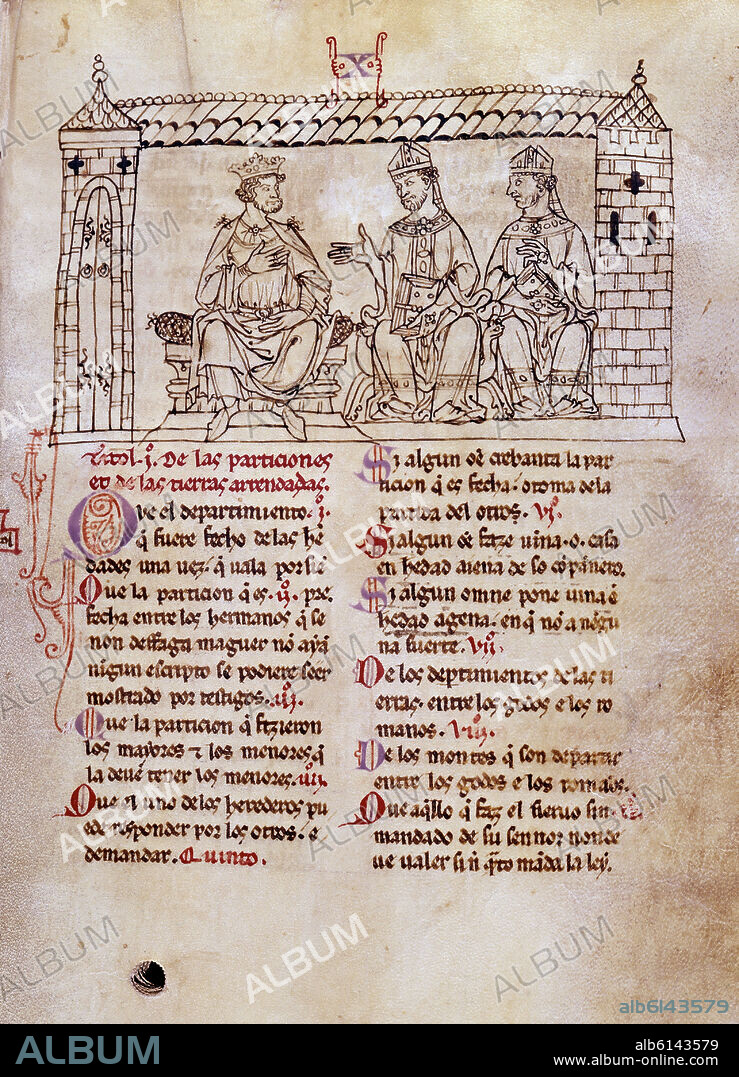 X
Titol .i. De las particiones
et de las tierras arrendadas.
Que el departimiento. .i.
q̃ fuere fecho de las he
dades una vez. q̃ uala por siẽ
Que la particion q̃ es. .ii. pre
fecha entre los hermanos q̃ se
non desfaga maguer nõ aya
nigun escripto se podiere seer
mostrado por testigos. .iii.
Que la particion q̃ fizieron
los mayores τ los menores, q̃
la deuẽ tener los menores. .iiii.
Que el uno de los herederos pu
ede responder por los otros. e
demandar. Quinto.
Si algun oẽ crebanta la par
ticion q̃ es fecha. o toma de la
partida del otros. .vi.
Si algun oẽ faze uina. o. casa
en hedad aiena de so cõpanero.
Si algun omne pone uina ẽ
hedad agena. en q̃ nõ a nĩgu
na suerte. .vii.
De los deptimientos de las ti
erras. entre los godos e los ro
manos. .viii.
De los montes q̃ son departir
entre los godos e los romãos.
Que aq̃llo q̃ faz el sieruo sin
mandado de su sennor non de
ue ualer si nõ q̃nto mãda la ley.
ALBUM
alb6143579
ALBUM
alb6143579
www.album-online.com